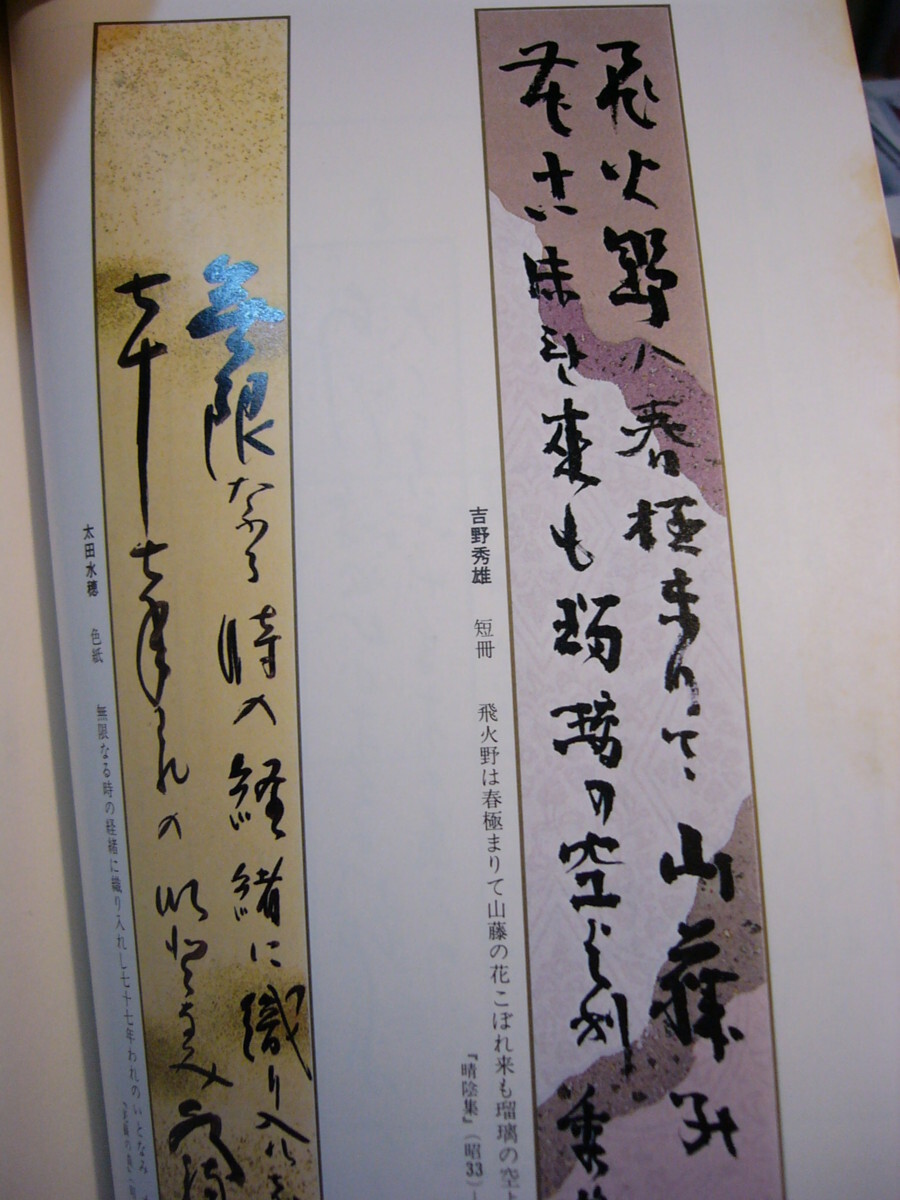 飛火野は春極まりて山藤の
花こぼれ来も瑠璃の空より 秀
吉野秀雄 短冊 飛火野は春極まりて山藤の花こぼれ来も瑠璃の空よ
『晴陰集』(昭33)
無限なる時の経緒に織り入れし
七十七年われのいとなみ 水穂
太田水穂 色紙 無限なる時の経緒に織り入れし七十七年われのいとなみ